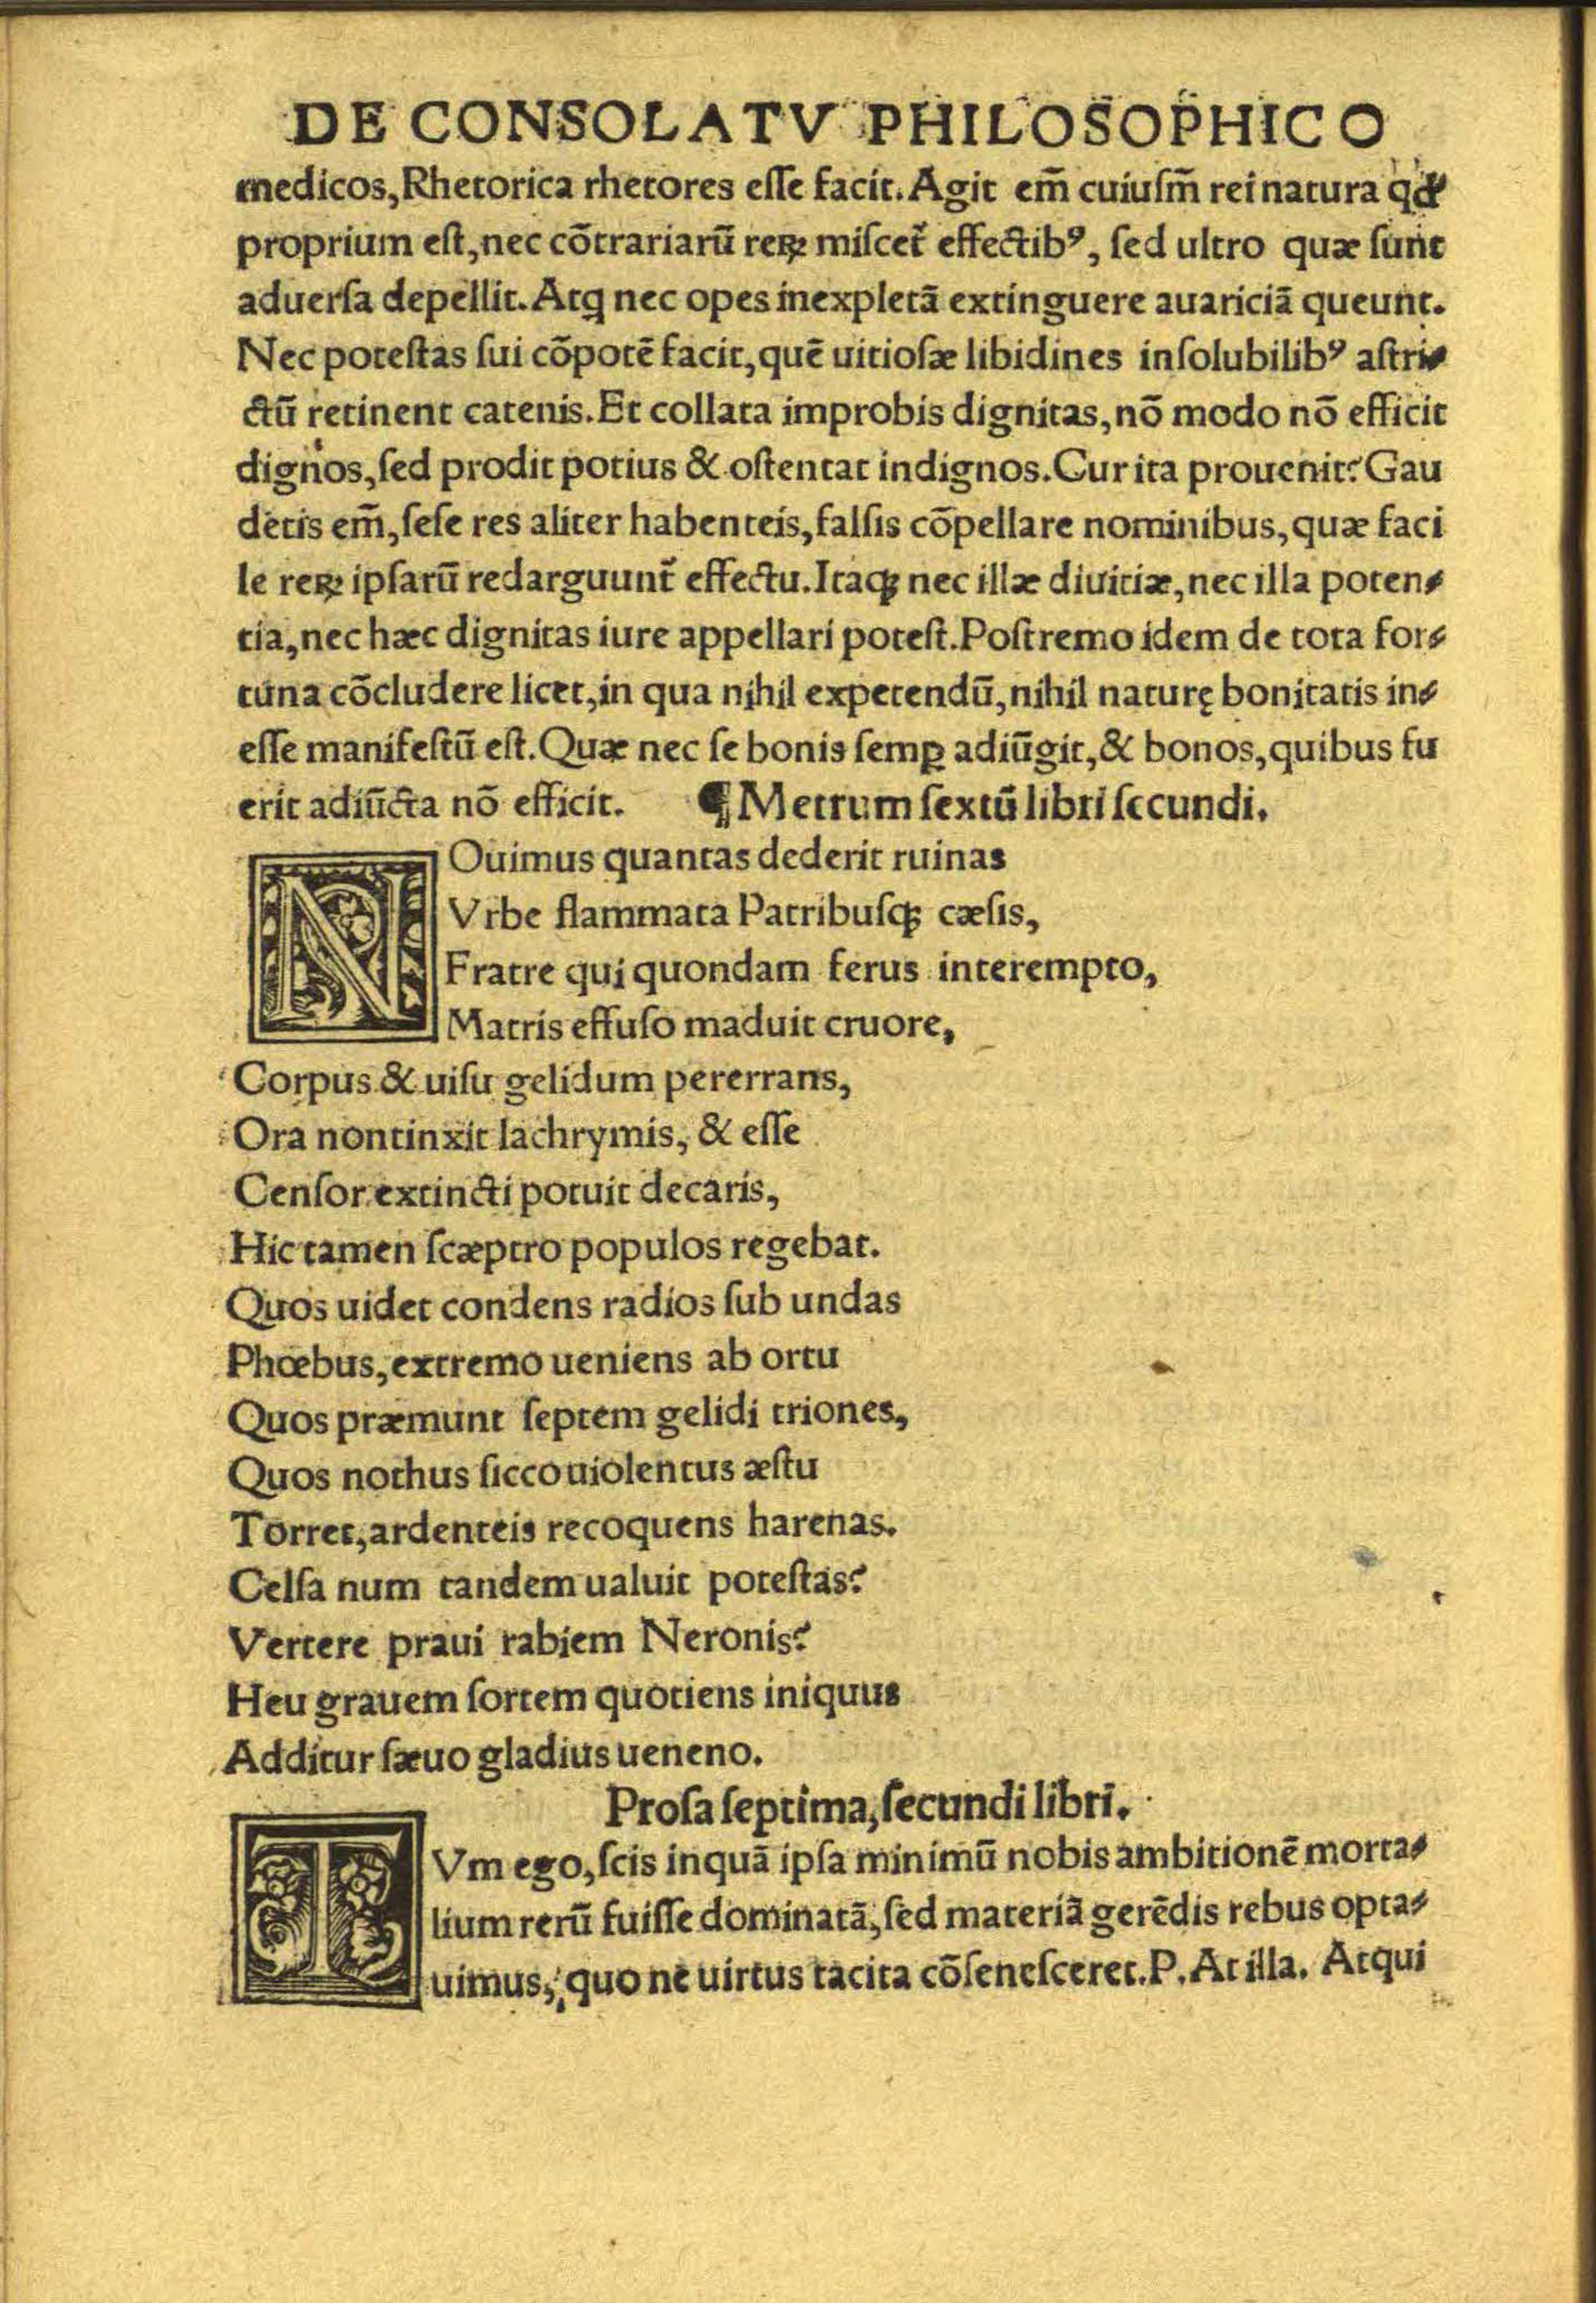 DE CONSOLATV PHILOSOPHICO
medicos, Rhetorica rhetores eſſe facit. Agit em̄ cuiuſm̄ rei natura qd'
proprium eſt, nec cōtrariarū reꝝ miſcet᷑ effectibꝰ, ſed ultro quæ ſunt
aduerſa depellit. Atq̨ nec opes inexpletā extinguere auariciā queunt.
Nec poteſtas ſui cōpotē facit, quē uitioſæ libidines inſolubilibꝰ aſtri⸗
ctū retinent catenis. Et collata improbis dignitas, nō modo nō efficit
dignos, ſed prodit potius & oſtentat indignos. Cur ita prouenit? Gau
detis em̄, ſeſe res aliter habenteis, falſis cōpellare nominibus, quæ faci
le reꝝ ipſarū redarguunt᷑ effectu. Itaqꝫ nec illæ diuitiæ, nec illa poten⸗
tia, nec hæc dignitas iure appellari poteſt. Poſtremo idem de tota for⸗
tuna cōcludere licet, in qua nihil expetendū, nihil naturę bonitatis in⸗
eſſe manifeſtū eſt. Quæ nec ſe bonis ſemꝑ adiūgit, & bonos, quibus fu
erit adiūcta nō efficit. ¶ Metrum ſextū libri ſecundi.
NOuimus quantas dederit ruinas
Vrbe flammata Patribuſqꝫ cæſis,
Fratre qui quondam ferus interempto,
Matris effuſo maduit cruore,
Corpus & uiſu gelidum pererrans,
Ora non tinxit lachrymis, & eſſe
Cenſor extincti potuit decaris,
Hic tamen ſcæptro populos regebat.
Quos uidet condens radios ſub undas
Phœbus, extremo ueniens ab ortu
Quos præmunt ſeptem gelidi triones,
Quos nothus ſicco uiolentus æſtu
Torret, ardenteis recoquens harenas.
Celſa num tandem ualuit poteſtas?
Vertere praui rabiem Neronis?
Heu grauem ſortem quotiens iniquus
Additur ſæuo gladius ueneno.
Proſa ſeptima, ſecundi libri.
TVm ego, ſcis inquā ipſa minimū nobis ambitionē morta⸗
lium rerū fuiſſe dominatā, ſed materiā gerēdis rebus opta⸗
uimus, quo ne uirtus tacita cōſeneſceret. P. At illa. Atqui